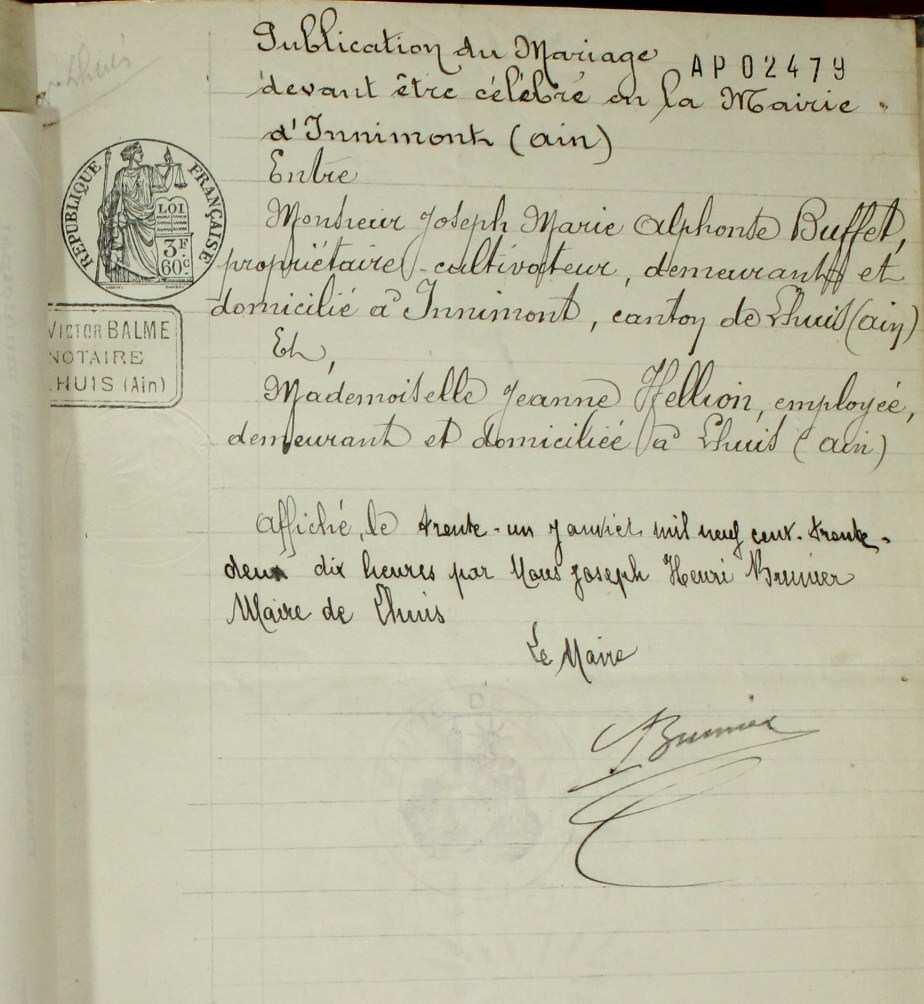 Lhuis
Publication du Mariage
AP02479
devant être célébré en la Mairie
d'Innimont (ain)
Entre
Monsieur Joseph Marie Alphonse Buffet,
propriétaire-cultivateur, demeurant et
domicilié à Innimont, canton de Lhuis (ain)
Et
Mademoiselle Jeanne Hellion, employée,
demeurant et domiciliée à Lhuis (ain)
RÉPUBLIQUE FRANÇAISE
LOI
3F
60c
VICTOR BALME
NOTAIRE
LHUIS (Ain)
Affiché, le trente-un janvier mil neuf cent-trente-
deux dix heures par Nous Joseph Henri Brunier
Maire de Lhuis
Le Maire
Brunier